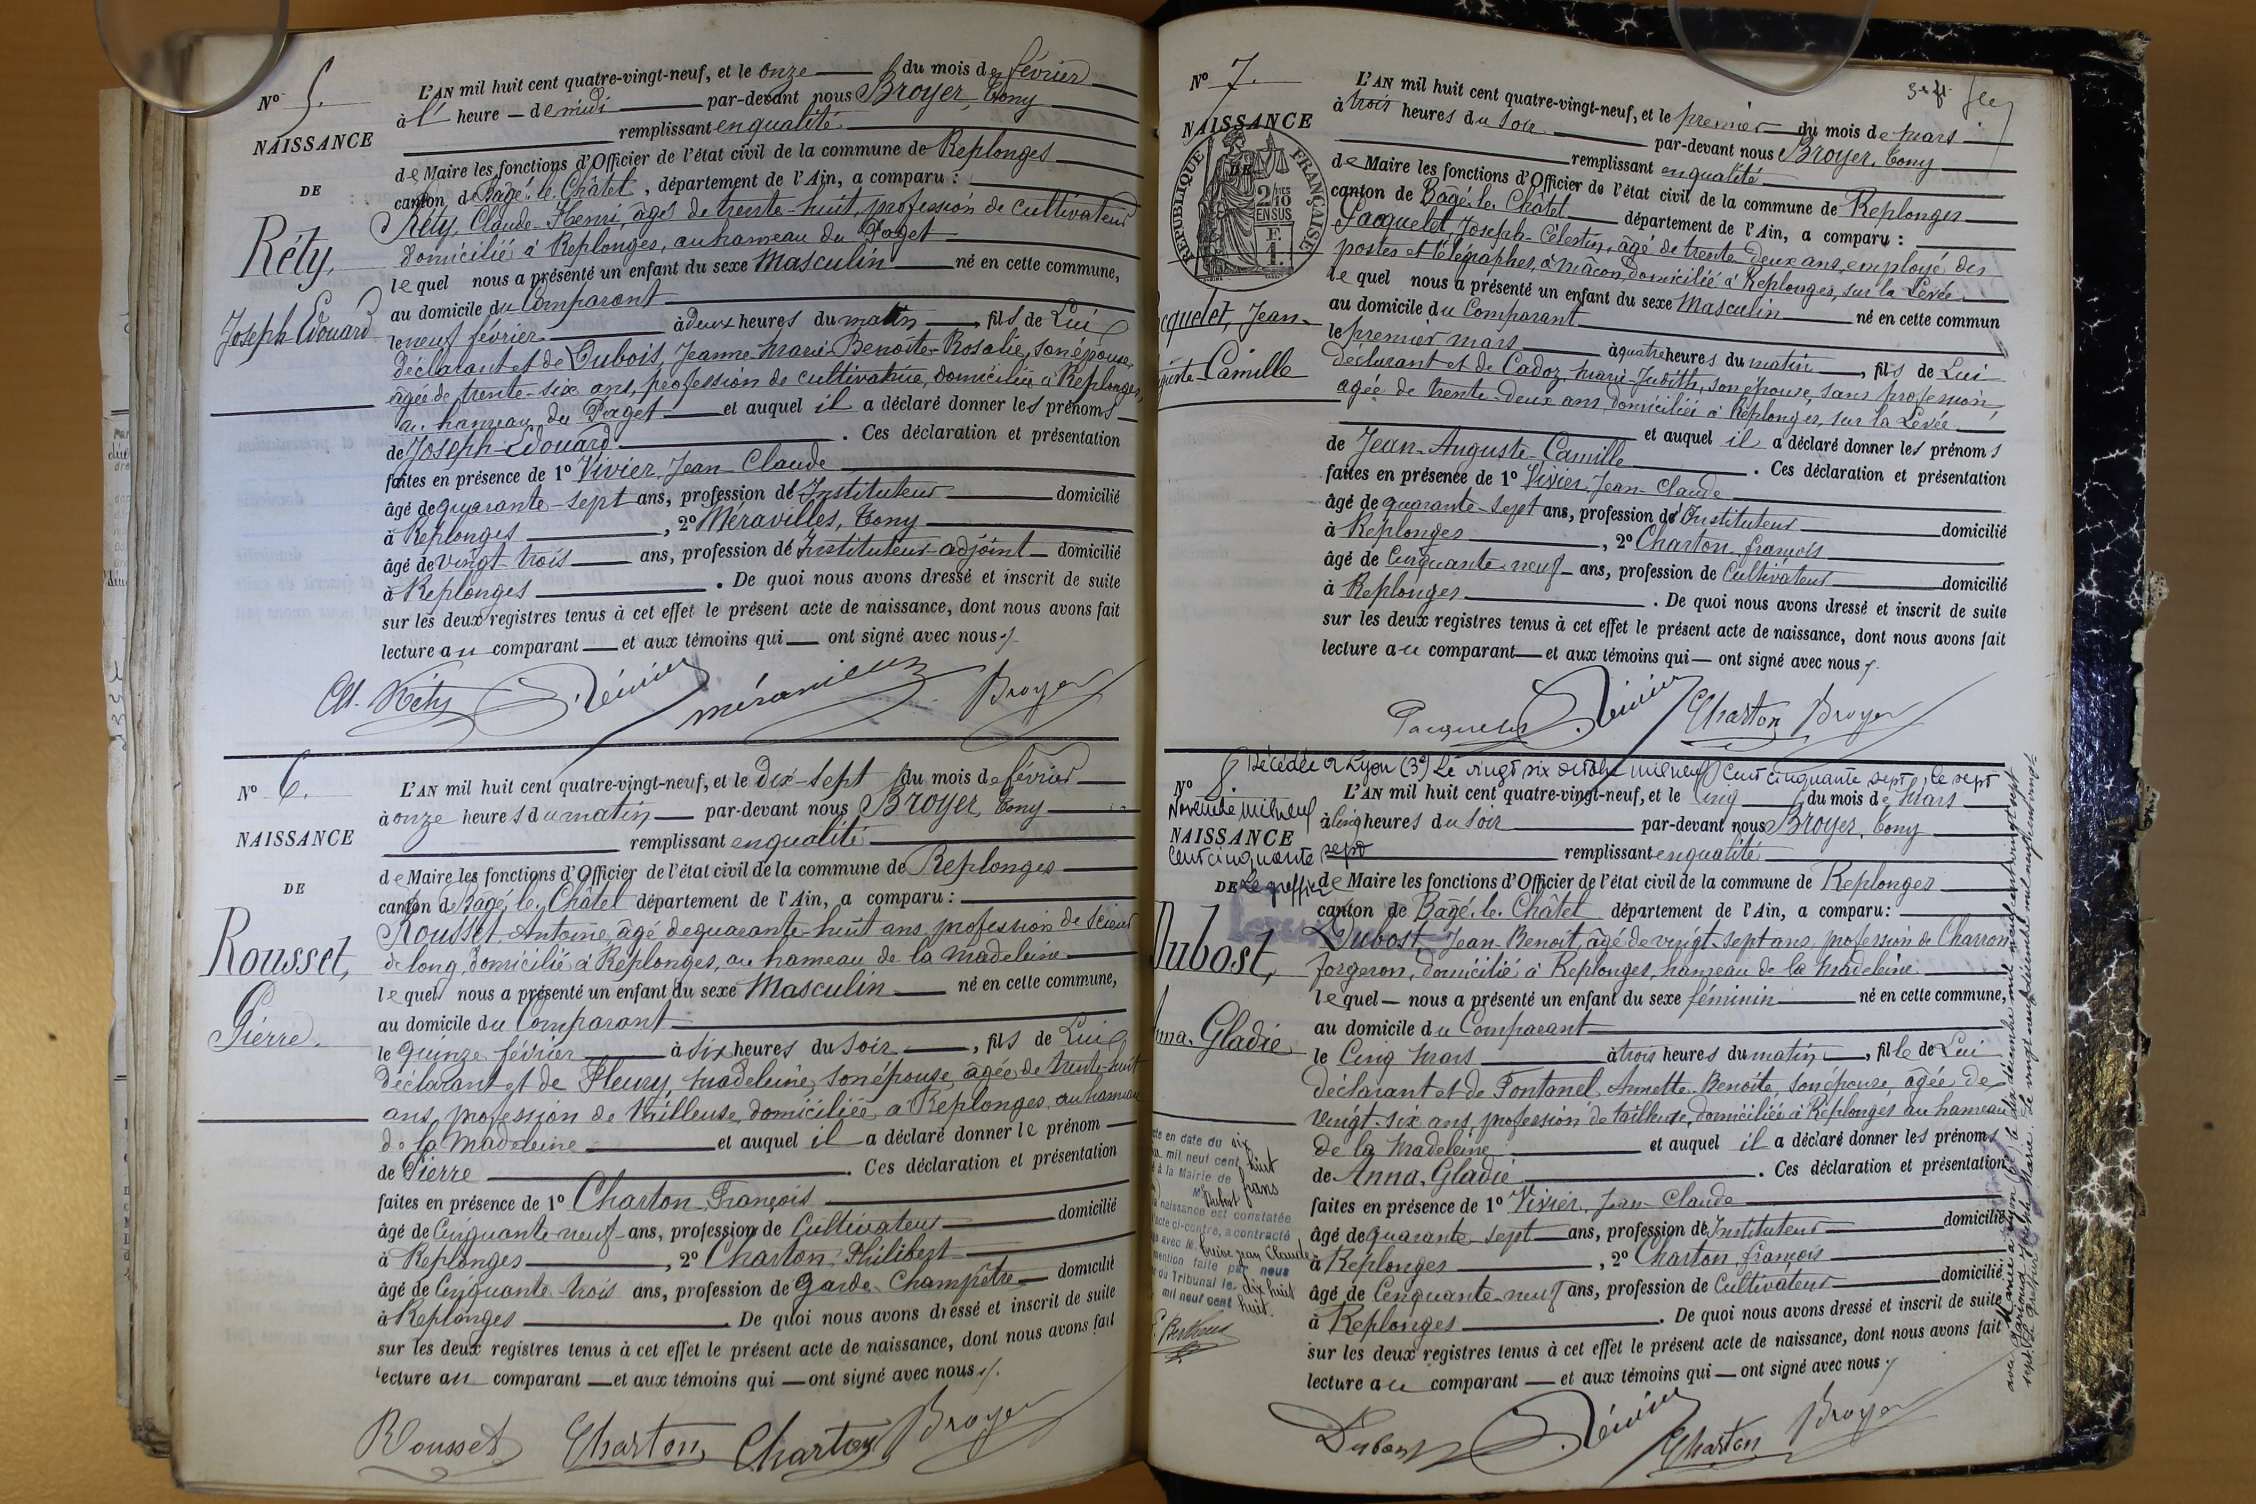 N° 5.
NAISSANCE
DE
Réty,
Joseph-Edouard
L'AN mil huit cent quatre-vingt-neuf, et le onze du mois de février
à l' heure de midi par-devant nous Broyer, Tony
remplissant en qualité
de Maire les fonctions d'Officier de l'état civil de la commune de Replonges
canton de Bâgé-le-Châtel, département de l'Ain, a comparu :
Réty, Claude-Henri, âgé de trente-huit, profession de cultivateur
domicilié à Replonges, au hameau du Paget
lequel nous a présenté un enfant du sexe Masculin né en cette commune,
au domicile du Comparant
le neuf février à deux heures du matin, fils de Lui
déclarant et de Dubois, Jeanne-Marie-Benoîte-Rosalie, son épouse,
âgée de trente-six ans, profession de cultivatrice, domiciliée à Replonges,
au hameau du Paget et auquel il a déclaré donner les prénoms
de Joseph-Edouard. Ces déclaration et présentation
faites en présence de 1° Vivier, Jean-Claude
âgé de quarante-sept ans, profession d'Instituteur domicilié
à Replonges, 2° Méravilles, Tony
âgé de vingt-trois ans, profession d'Instituteur-adjoint domicilié
à Replonges. De quoi nous avons dressé et inscrit de suite
sur les deux registres tenus à cet effet le présent acte de naissance, dont nous avons fait
lecture au comparant et aux témoins qui ont signé avec nous
Réty Vivier Broyer
N° 6.
NAISSANCE
DE
Rousset,
Pierre.
L'AN mil huit cent quatre-vingt-neuf, et le dix-sept du mois de février
à onze heures du matin par-devant nous Broyer, Tony
remplissant en qualité
de Maire les fonctions d'Officier de l'état civil de la commune de Replonges
canton de Bâgé-le-Châtel département de l'Ain, a comparu :
Rousset, Antoine, âgé de quarante-huit ans, profession de scieur
de long, domicilié à Replonges, au hameau de la Madeleine
lequel nous a présenté un enfant du sexe Masculin né en cette commune,
au domicile du Comparant
le quinze février à six heures du soir, fils de Lui
déclarant et de Fleury, Madeleine, son épouse, âgée de trente-huit
ans, profession de tailleuse, domiciliée à Replonges, au hameau
de la Madeleine et auquel il a déclaré donner le prénom
de Pierre. Ces déclaration et présentation
faites en présence de 1° Charton, François
âgé de Cinquante-neuf ans, profession de Cultivateur domicilié
à Replonges, 2° Charton, Philibert
âgé de Cinquante-trois ans, profession de Garde-Champêtre domicilié
à Replonges. De quoi nous avons dressé et inscrit de suite
sur les deux registres tenus à cet effet le présent acte de naissance, dont nous avons fait
lecture au comparant et aux témoins qui ont signé avec nous
Rousset Charton Charton Broyer
N° 7.
NAISSANCE
DE
RÉPUBLIQUE FRANÇAISE
2/10 EN SUS
Jean-
Camille
L'AN mil huit cent quatre-vingt-neuf, et le premier du mois de mars
à trois heures du soir par-devant nous Broyer, Tony
remplissant en qualité
de Maire les fonctions d'Officier de l'état civil de la commune de Replonges
canton de Bâgé-le-Châtel département de l'Ain, a comparu :
Jacquelet, Joseph-Célestin, âgé de trente-deux ans, employé des
postes et télégraphes, à Mâcon, domicilié à Replonges, sur la Levée
lequel nous a présenté un enfant du sexe Masculin né en cette commun
au domicile du Comparant
le premier mars à quatre heures du matin, fils de Lui
déclarant et de Cadoz, Marie-Judith, son épouse, sans profession,
âgée de trente-deux ans, domiciliée à Replonges, sur la Levée
et auquel il a déclaré donner les prénoms
de Jean-Auguste-Camille. Ces déclaration et présentation
faites en présence de 1° Vivier, Jean-Claude
âgé de quarante-sept ans, profession d'Instituteur domicilié
à Replonges, 2° Charton, François
âgé de Cinquante-neuf ans, profession de Cultivateur domicilié
à Replonges. De quoi nous avons dressé et inscrit de suite
sur les deux registres tenus à cet effet le présent acte de naissance, dont nous avons fait
lecture au comparant et aux témoins qui ont signé avec nous
Jacquelet Vivier Charton Broyer
Décédée à Lyon (3e) le vingt six octobre mil neuf cent cinquante sept, le sept
Novembre mil neuf
cent cinquante sept
Le greffier
N° 8.
NAISSANCE
DE
Dubost,
Anna-Gladie
L'AN mil huit cent quatre-vingt-neuf, et le cinq du mois de Mars
à cinq heures du soir par-devant nous Broyer, Tony
remplissant en qualité
de Maire les fonctions d'Officier de l'état civil de la commune de Replonges
canton de Bâgé-le-Châtel département de l'Ain, a comparu :
Dubost, Jean-Benoit, âgé de vingt-sept ans, profession de Charron
forgeron, domicilié à Replonges, hameau de la Madeleine
lequel nous a présenté un enfant du sexe féminin né en cette commune,
au domicile du Comparant
le Cinq Mars à trois heures du matin, fille de Lui
déclarant et de Fontanel, Annette-Benoîte, son épouse, âgée de
vingt-six ans, profession de tailleuse, domiciliée à Replonges au hameau
de la Madeleine et auquel il a déclaré donner les prénoms
de Anna-Gladie. Ces déclaration et présentation
faites en présence de 1° Vivier, Jean-Claude
âgé de quarante-sept ans, profession d'Instituteur domicilié
à Replonges, 2° Charton, François
âgé de Cinquante-neuf ans, profession de Cultivateur domicilié
à Replonges. De quoi nous avons dressé et inscrit de suite
sur les deux registres tenus à cet effet le présent acte de naissance, dont nous avons fait
lecture au comparant et aux témoins qui ont signé avec nous
Dubost Vivier Charton Broyer
en date du six
mil neuf cent huit
à la Mairie de
Dubost
naissance est constatée
acte ci-contre, a contracté
avec M. Jean Claude
mention faite par nous
du Tribunal le dix huit
mil neuf cent huit.